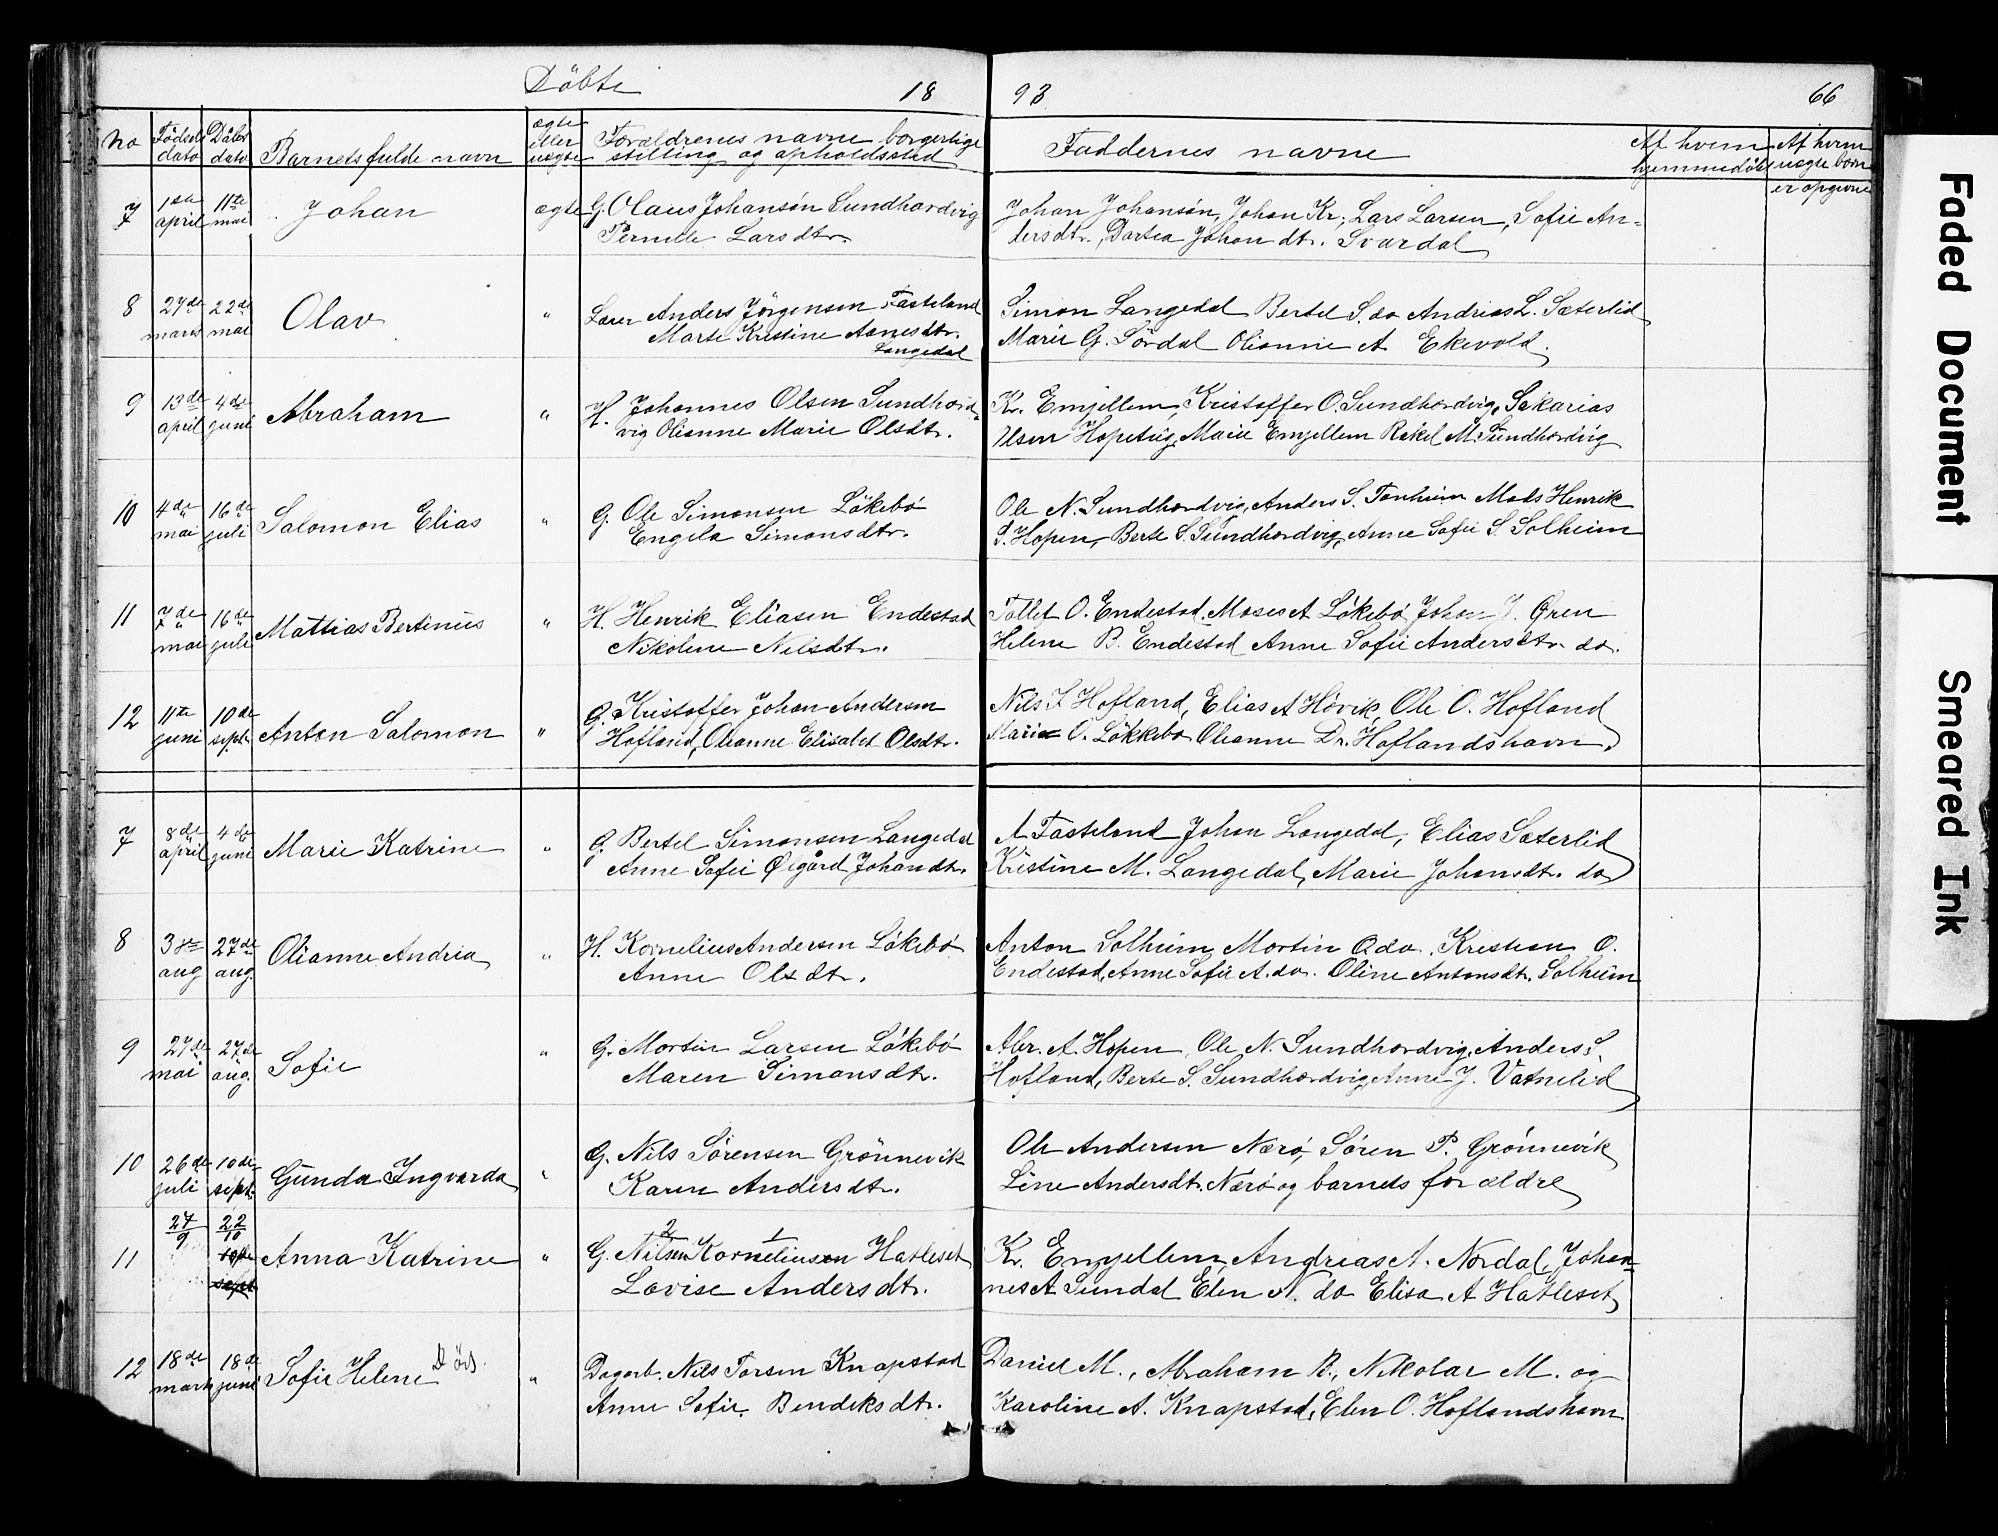 Döbte 18 93 66
No Födsels dato Dåbs dato Barnets fulde navn ægte eller uægte Forældrenes navne borgerlige stilling og opholdssted Faddernes navne Af hvem hjemmedöbt Af hvem uægte børn er opgivne
7 1ste april 11te mai Johan ægte G. Olaus Johansön Sundhordvig Johan Johansön, Johan Kr., Lars Larsen, Sofie An-
Pernille Larsdtr. dersdtr., Dortea Johandtr. Svardal
8 27de marts 22de mai Olav " Lærer Anders Jörgensen Fasteland Simon Langedal Bertel S. do Andrias L. Sæterlid
Marte Kristine Aanesdtr. Langedal Marie G. Sördal Olianne A Ekevold.
9 13de april 4de juni Abraham " H. Johannes Olsen Sundhord- Kr. Emjellem, Kristoffer O. Sundhordvig, Sakarias
vig Olianne Marie Olsdtr. Olsen Hopstig, Marie Emjellem Rakel M. Sundhordvig
10 4de mai 16de juli Salomon Elias " G. Ole Simonsen Lökebö Ole N. Sundhordvig, Anders S. Tonheim Mads Henrik
Engela Simonsdtr. S. Hopen, Berte S. Sundhordvig, Anne Sofie S. Solheim
11 7de mai 16de juli Mattias Bertinus " H. Henrik Eliasen Endestad Tollef O. Endestad, Moses A Lökebö Johan J. Øren
Nikoline Nilsdtr. Helene B. Endestad Anne Sofie Andersdtr. do.
12 11te juni 10de sept. Anton Salomon " G. Kristoffer Johan Andersen Nils J Hofland, Elias A Hövik, Ole O. Hofland
Hofland, Olianne Elisabet Olsdtr. Marie O. Lökkebö Olianne Dr. Hoflandshavn.
7 8de april 4de juni Marie Katrine " G. Bertel Simonsen Langedal A Fasteland Johan Langedal, Elias Sæterlid
Anne Sofie Øigård Johandtr. Kristine M. Langedal, Marie Johansdtr. do
8 3die aug 27de aug. Olianne Andrea " H. Kornelius Andersen Lökebö Anton Solheim, Mortin O do. Kristian O.
Anne Olsdtr. Endestad, Anne Sofie A. do. Oline Antonsdtr. Solheim
9 27de mai 27de aug. Sofie " G. Mortin Larsen Lökebö Abr. A. Hopen, Ole N. Sundhordvig, Anders S.
Maren Simonsdtr. Hofland, Berte S. Sundhordvig, Anne J. Vatnelid
10 26de juli 10de sept. Gunda Ingvarda " G. Nils Sörensen Grönnevik Ole Andersen Nærö, Sören P. Grönnevik
Karen Andersdtr. Line Andersdtr. Nærö og barnets forældre
11 27/9 22/10 10de sept. Anna Katrine " G. 2 Nilsen 1 Korneliusen Hatleset Kr. Emjellem, Andreas A. Nordal, Johan-
Lovise Andersdtr. nes A Sundal Elen N. do Elisa A Hatleset
12 18de marts 18de juni Sofie Helene Död. " Dagarb. Nils Torsen Knapstad Daniel M., Abraham B., Nikolai M. og
Anne Sofie Bendiksdtr. Karoline A. Knapstad, Elen O. Hoflandshavn
Faded Document
Smeared Ink